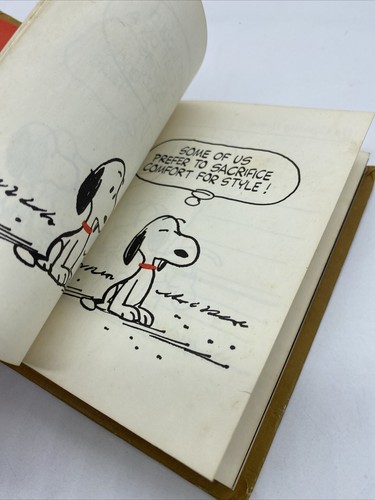 SOME OF US
PREFER TO SACRIFICE
COMFORT FOR STYLE!